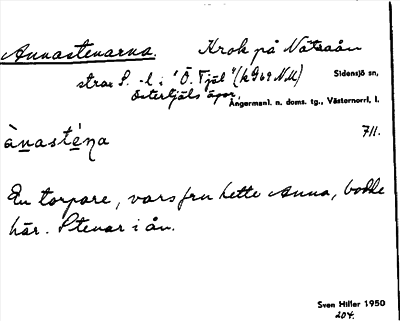 Annastenarna. Krok på Nätraån
strax S. -l. i "Ö. Fjäl" (k G69 NU) Sidensjö sn,
Österfjäls ägor. Ångermanl. n. doms. tg., Västernorrl. l.
ànasténa 711.
En torpare, vars fru hette Anna, bodde
här. Stenar i ån.
Sven Hiller 1950
204.